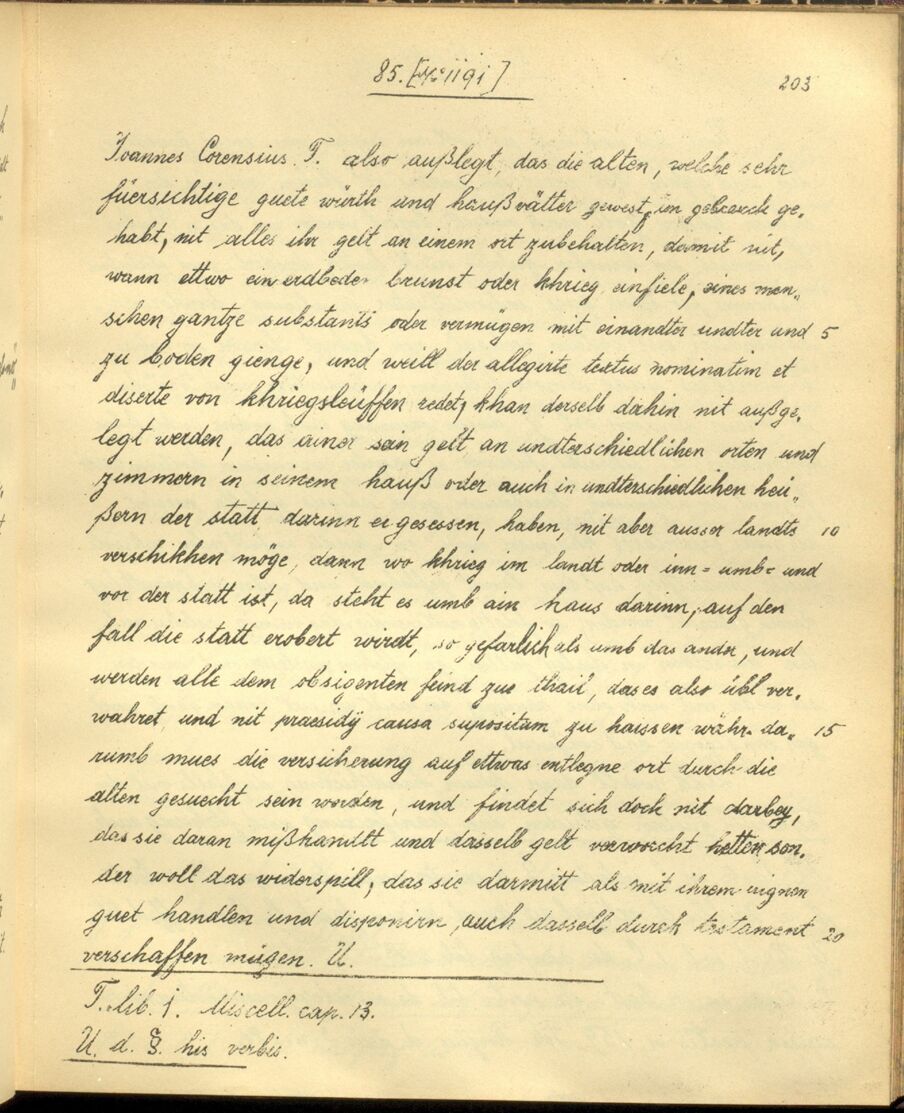 85. [Nº 1191]
203
Joannes Corensius T. also außlegt, das die alten, welche sehr
füersichtige guete würth und haußvätter gewest, im gebrauch ge„
habt, nit alles ihr gelt an einem ort zubehalten, damit nit,
wann ettwo ein erdbeden brunst oder khrieg einfiele, eines men„
schen gantze substants oder vermügen mit einandter undter und 5
zu boden gienge, und weill der allegirte textus nominatim et
diserte von khriegsleüffen redet, khan derselb dahin nit außge„
legt werden, das ainer sein gelt an undterschiedlichen orten und
zimmern in seinem hauß oder auch in undterschiedlichen heü„
ßern der statt, darinn er gesessen, haben, nit aber ausser landts 10
verschikhen möge, dann wo khrieg im landt oder inn= umb= und
vor der statt ist, da steht es umb ain haus darinn, auf den
fall die statt erobert wirdt, so gefarlich als umb das ander, und
werden alle dem obsigenten feind zue thail, das es also übl ver„
wahret und nit praesidÿ causa supositum zu haissen währ. da„ 15
rumb mues die versicherung auf ettwas entlegne ort durch die
alten gesuecht sein worden, und findet sich doch nit darbey,
das sie daran mißhandlt und dasselb gelt verworcht hetten son„
der woll das widerspill, das sie darmitt als mit ihrem aignen
guet handlen und disponirn, auch dasselb durch testament 20
verschaffen mügen. U.
T. lib. 1. Miscell. cap. 13.
U. d. §. his verbis.